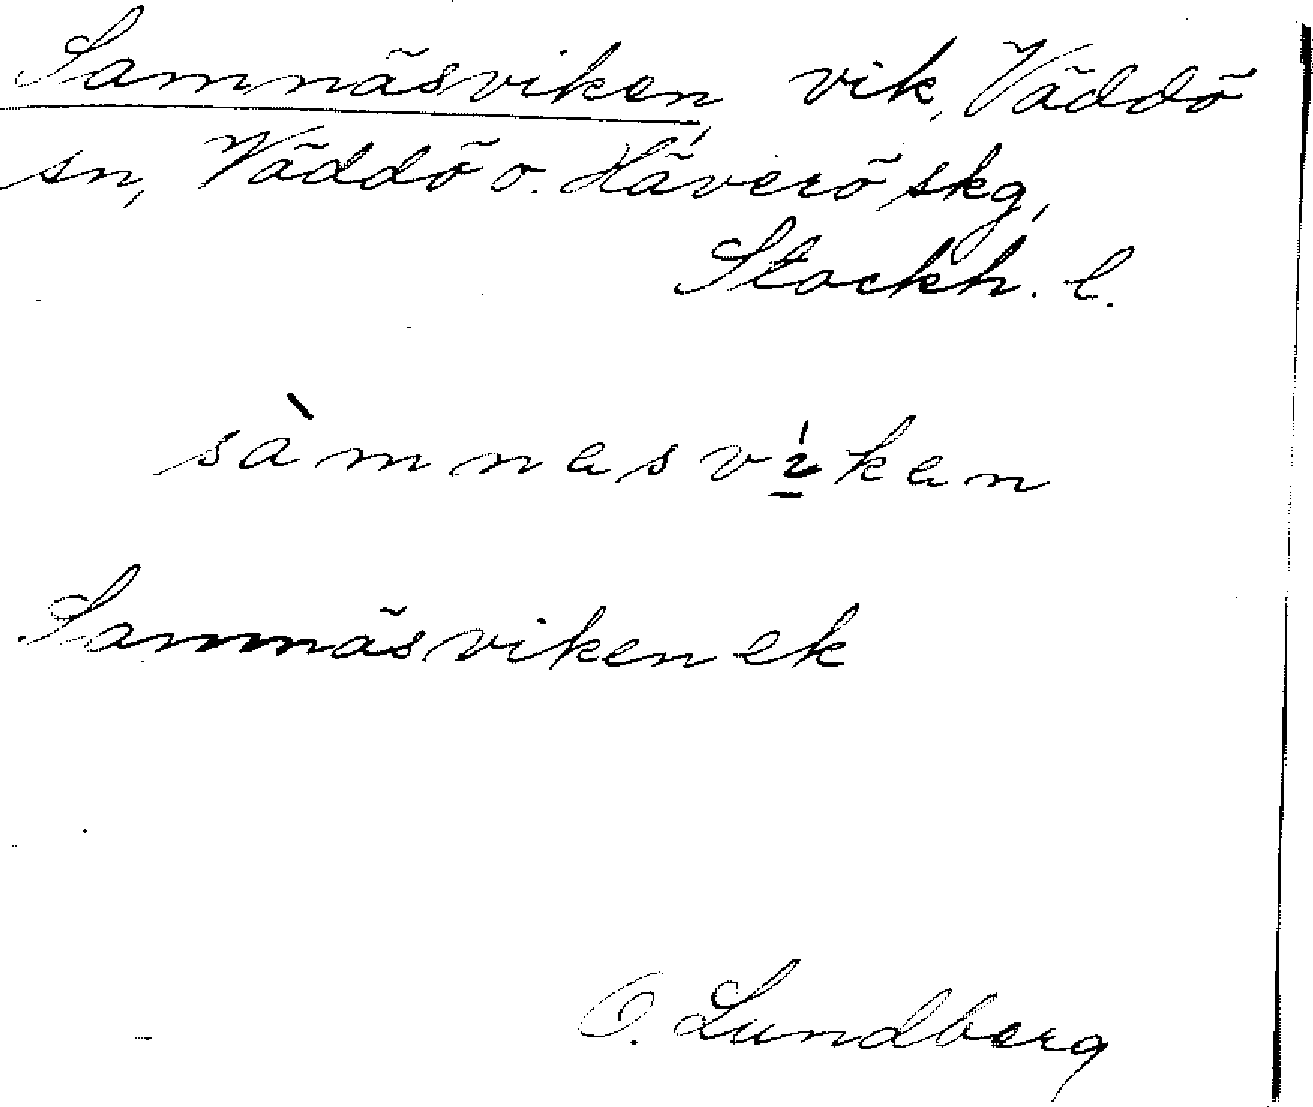 Samnäsviken vik, Väddö
sn, Väddö o. Häverö skg,
Stockh. l.
sàmnasvíken
Samnäsviken ek
O. Lundberg